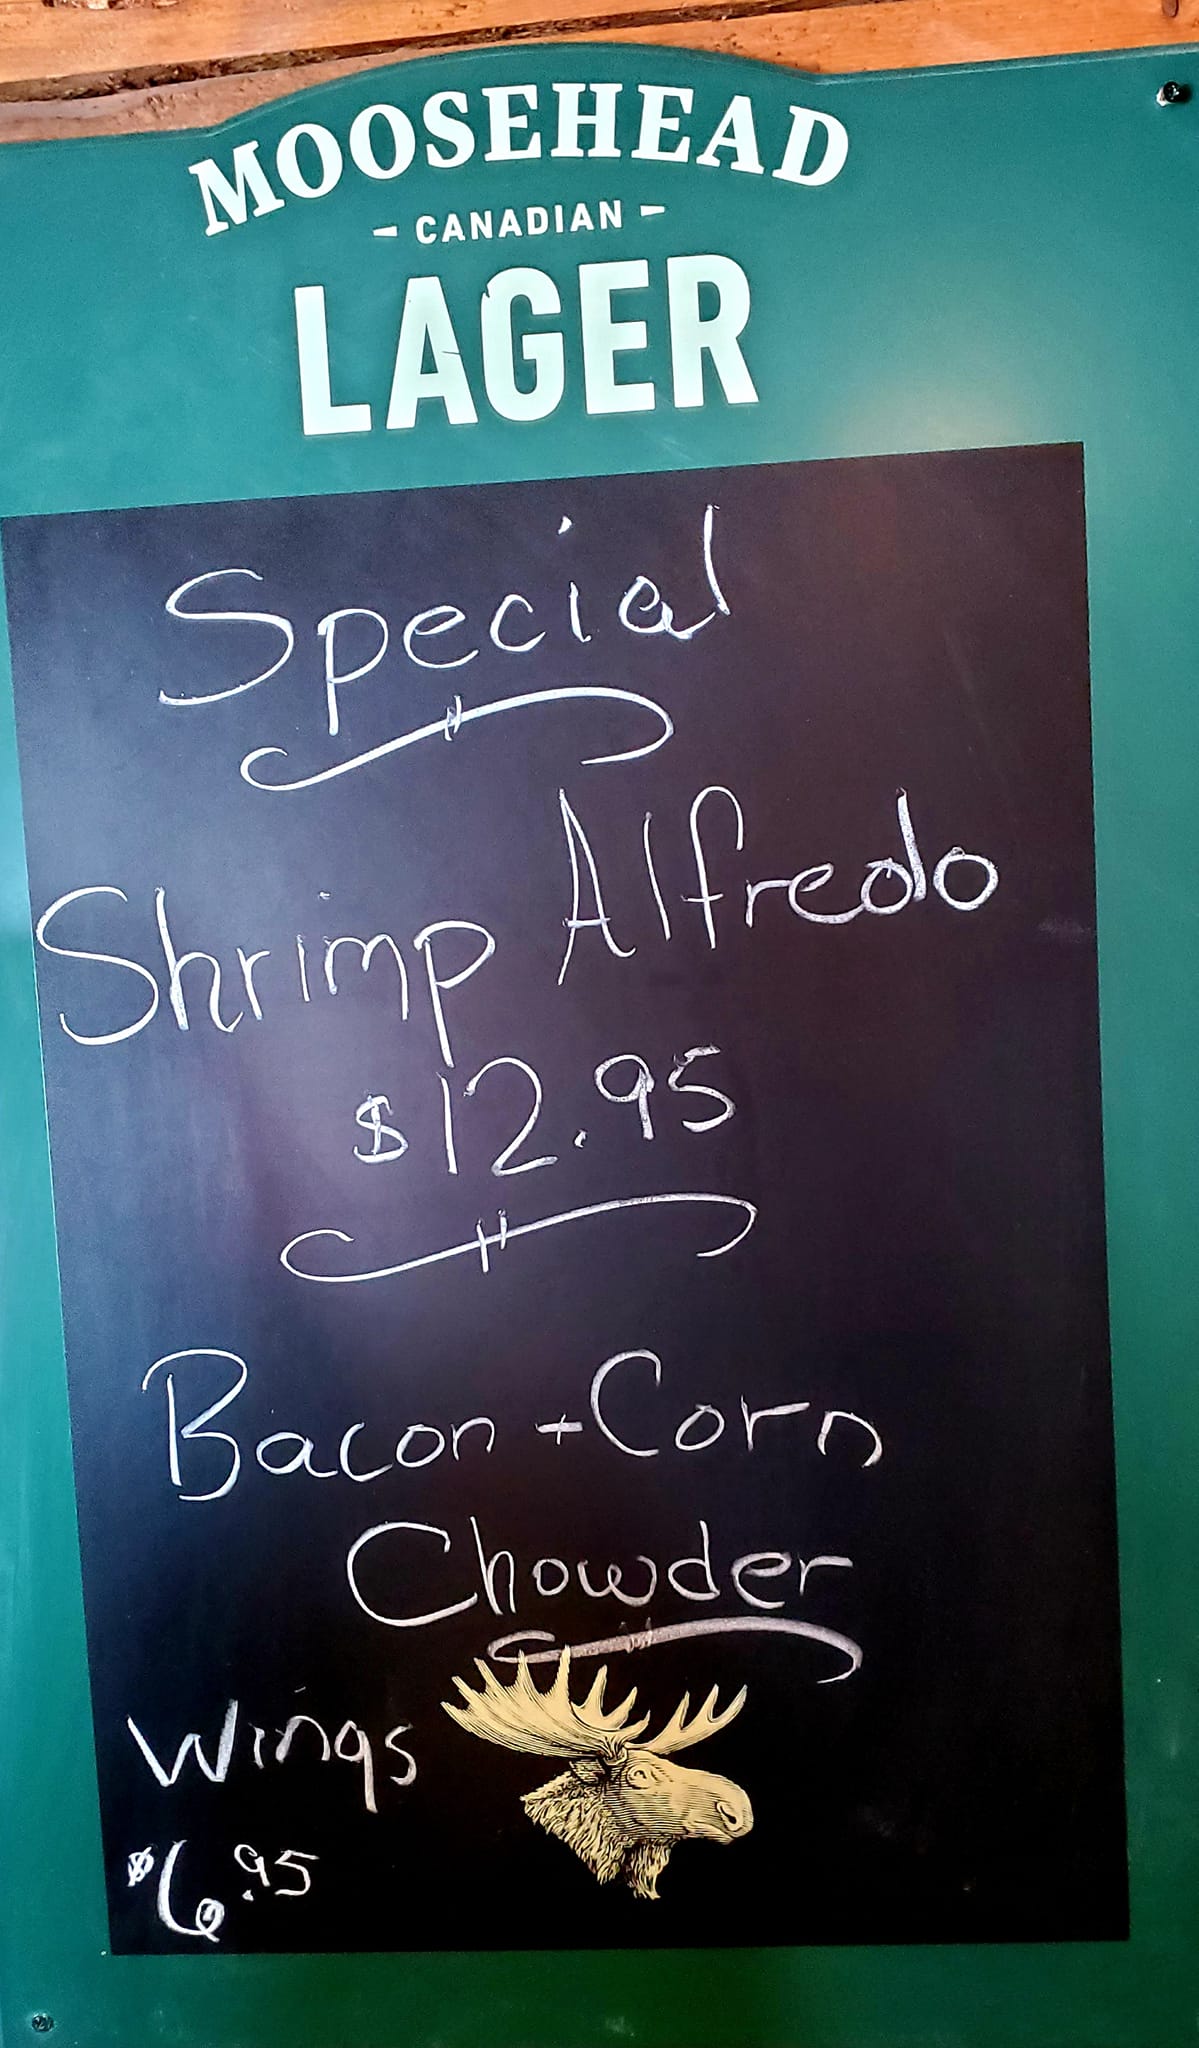 MOOSEHEAD
- CANADIAN -
LAGER
Special
Shrimp Alfredo
$12.95
Bacon + Corn
Chowder
Wings
$6.95